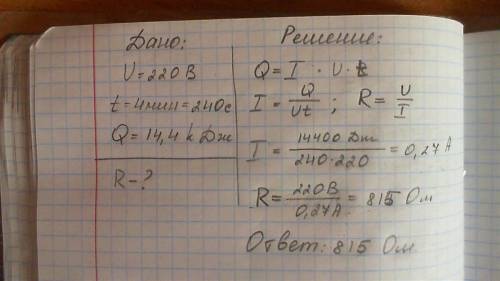 Дано:
U=220В
t=4мин=240с
Q=14,4 кДж
R-?
Решение:
Q=I · U · t
I = Q/Ut ; R= U/I
I = 14400 Дж/240·220 = 0,27 А
R= 220В/0,27А = 815 Ом
Ответ: 815 Ом